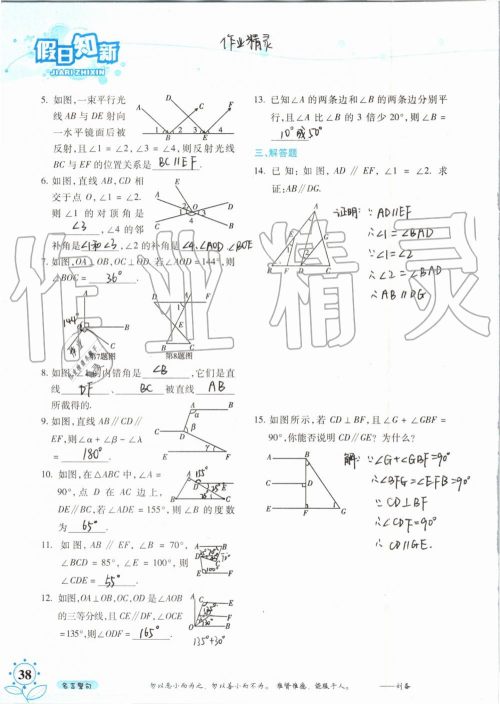 假日知新
JIARI ZHIXIN
作业精灵
5. 如图,一束平行光
线 AB 与 DE 射向
一水平镜面后被
反射,且∠1=∠2,∠3=∠4,则反射光线
BC 与 EF 的位置关系是 BC∥EF.
6. 如图,直线 AB,CD 相
交于点 O,∠1=∠2.
则∠1 的对顶角是
∠3 ,∠4 的邻
补角是∠1和∠3,∠2 的补角是∠4,∠AOD,∠BOE
7. 如图,OA⊥OB,OC⊥OD.若∠AOD=144°,则
∠BOC= 36° .
144°
第7题图 第8题图
的内错角是 ∠B ,它们是直
线 DF 、 BC 被直线 AB
所截得的.
9. 如图,直线 AB∥CD∥
EF,则∠α+∠β-∠λ
= 180° .
10. 如图,在△ABC 中,∠A=
90°,点 D 在 AC 边上,
DE∥BC,若∠ADE=155°,则∠B 的度数
为 65° .
11. 如图, AB∥EF, ∠B=70°,
∠BCD=85°, ∠E=100°, 则
∠CDE= 55° .
12. 如图,OA⊥OB,OC,OD 是∠AOB
的三等分线,且 CE∥DF,∠OCE
=135°,则∠ODF= 165° .
135+30°
13. 已知∠A 的两条边和∠B 的两条边分别平
行,且∠A 比∠B 的 3 倍少 20°,则∠B=
10°或50° .
三、解答题
14. 已知:如图,AD∥EF,∠1=∠2.求
证:AB∥DG.
证明: ∵AD∥EF
∴∠1=∠BAD
∵∠1=∠2
∴∠2=∠BAD
∴AB∥DG
15. 如图所示,若 CD⊥BF,且∠G+∠GBF=
90°,你能否说明 CD∥GE? 为什么?
解: ∵∠G+∠GBF=90°
∴∠BFG=∠EFB=90°
∵CD⊥BF
∴∠CDF=90°
∴CD∥GE.
作业精灵
38
名言警句
勿以恶小而为之,勿以善小而不为。惟贤惟德,能服于人。 ——刘备